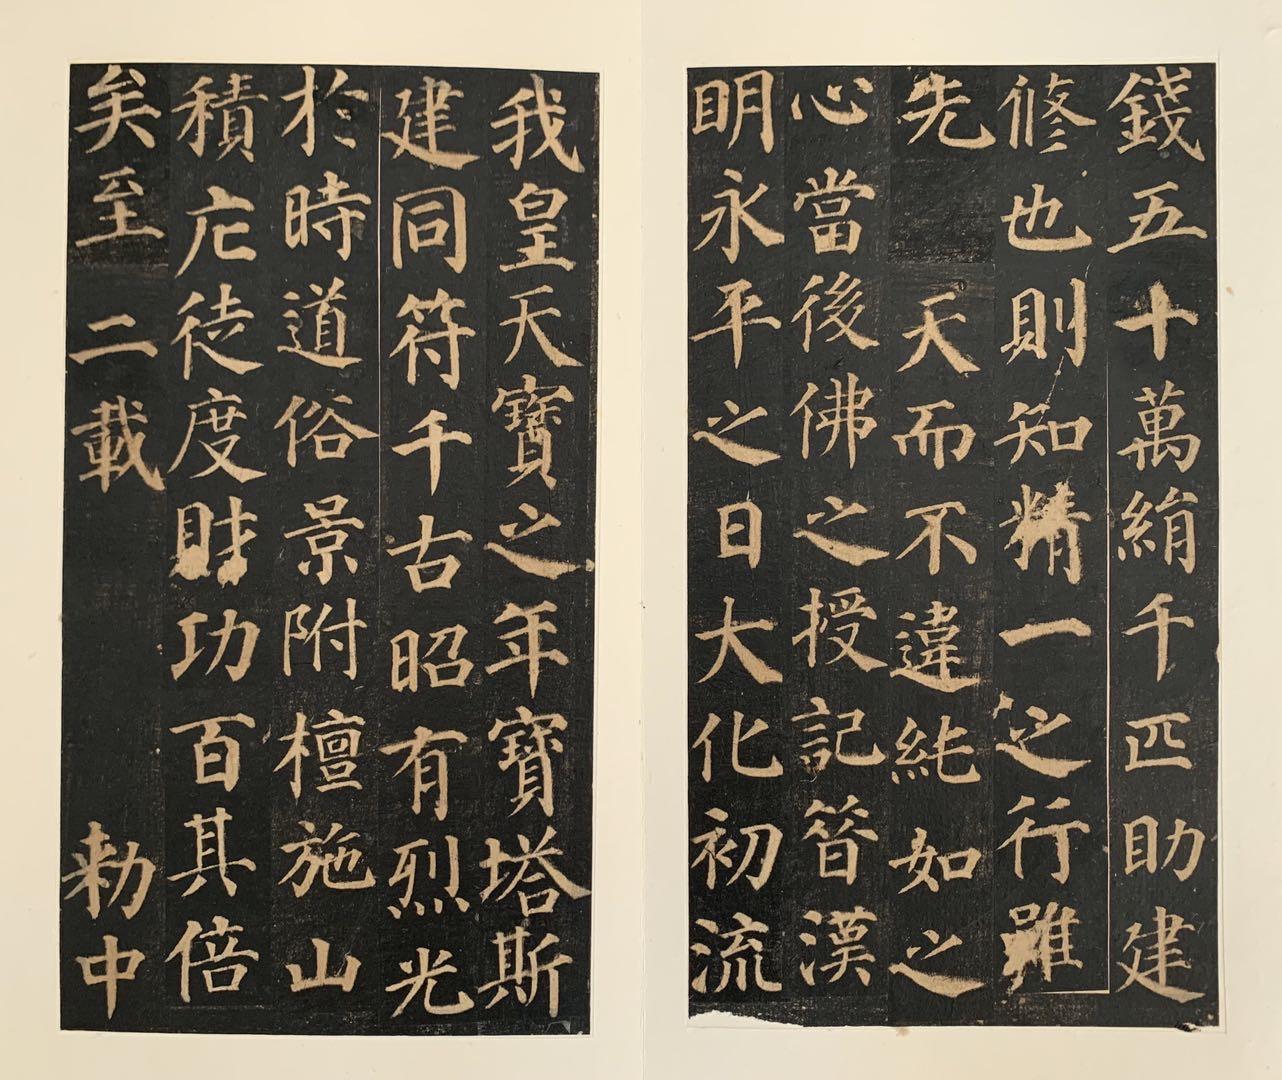 錢五十萬絹千匹助建
修也則知精一之行雖
先天而不違純如之
心當後佛之授記昔漢
明永平之日大化初流
我皇天寶之年寶塔斯
建同符千古昭有烈光
於時道俗景附檀施山
積庀徒度財功百其倍
矣至二載敕中